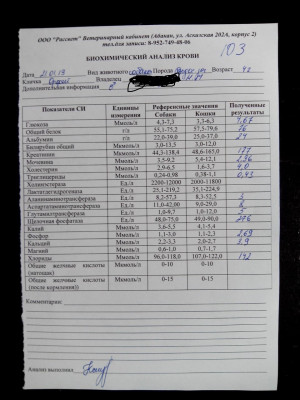 ООО "Рассвет" Ветеринарный кабинет (Абакан, ул. Аскизская 202А, корпус 2)
тел.для записи: 8-952-749-48-06
103
БИОХИМИЧЕСКИЙ АНАЛИЗ КРОВИ
Дата Вид животного Порода Возраст
Кличка Владелец
Дополнительная информация
Показатели СИ Единицы измерения Референсные значения Полученные результаты
Собаки Кошки
Глюкоза Ммоль/л 4,3-7,3 3,3-6,3
Общий белок г/л 55,1-75,2 57,5-79,6 76
Альбумин г/л 22,0-39,0 25,0-37,0 24
Билирубин общий Ммоль/л 3,0-13,5 3,0-12,0
Креатинин Ммоль/л 44,3-138,4 48,6-165,0 177
Мочевина Ммоль/л 3,5-9,2 5,4-12,1
Холестерин Ммоль/л 2,9-6,5 1,6-3,7 4,0
Триглицериды Ммоль/л 0,24-0,98 0,38-1,1 0,43
Холинэстераза Ед./л 2200-12000 2000-11800
Лактатдегидрогеназа Ед./л 25,1-219,2 55,1-224,9
Аланинаминотрансфераза Ед./л 8,2-57,3 8,3-52,5 3
Аспартатаминотрансфераза Ед./л 11,0-42,00 9,0-29,0
Глутамилтрансфераза Ед./л 1,0-9,7 1,0-12,0
Щелочная фосфатаза Ед./л 48,0-75,0 49,0-90,0 276
Калий Ммоль/л 3,6-5,5 4,1-5,4
Фосфор Ммоль/л 1,1-3,0 1,1-2,3
Кальций Ммоль/л 2,2-3,3 2,0-2,7 3,9
Магний Ммоль/л 0,6-1,0 0,7-1,7
Хлориды Ммоль/л 96,0-118,0 107,0-122,0 142
Общие желчные кислоты (натощак) Ммоль/л 0-10 0-10
Общие желчные кислоты (после кормления) Ммоль/л 0-15 0-15
Комментарии:
Анализ выполнил